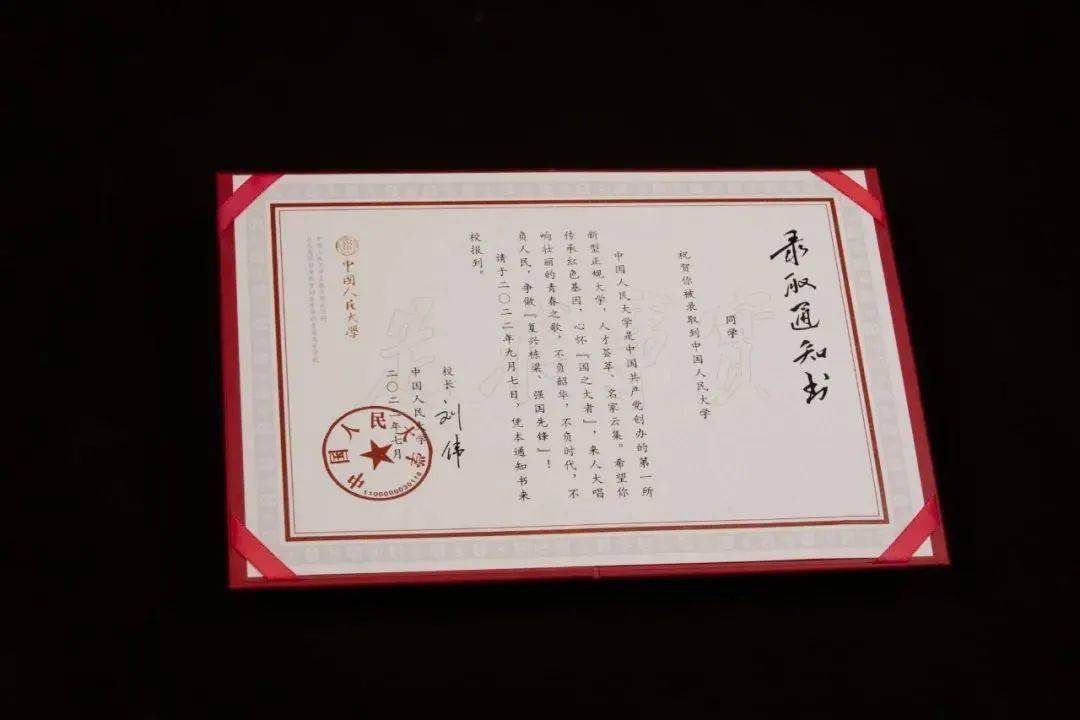 录取通知书
同学
祝贺你被录取到中国人民大学
中国人民大学是中国共产党创办的第一所
新型正规大学，人才荟萃、名家云集。希望你
传承红色基因，心怀『国之大者』，来人大唱
响壮丽的青春之歌，不负韶华，不负时代，不
负人民，争做『复兴栋梁、强国先锋』！
请于二〇二二年九月七日，凭本通知书来
校报到。
校长：刘伟
中国人民大学
二〇二二年七月
中国人民大学
1100000030116
中国人民大学